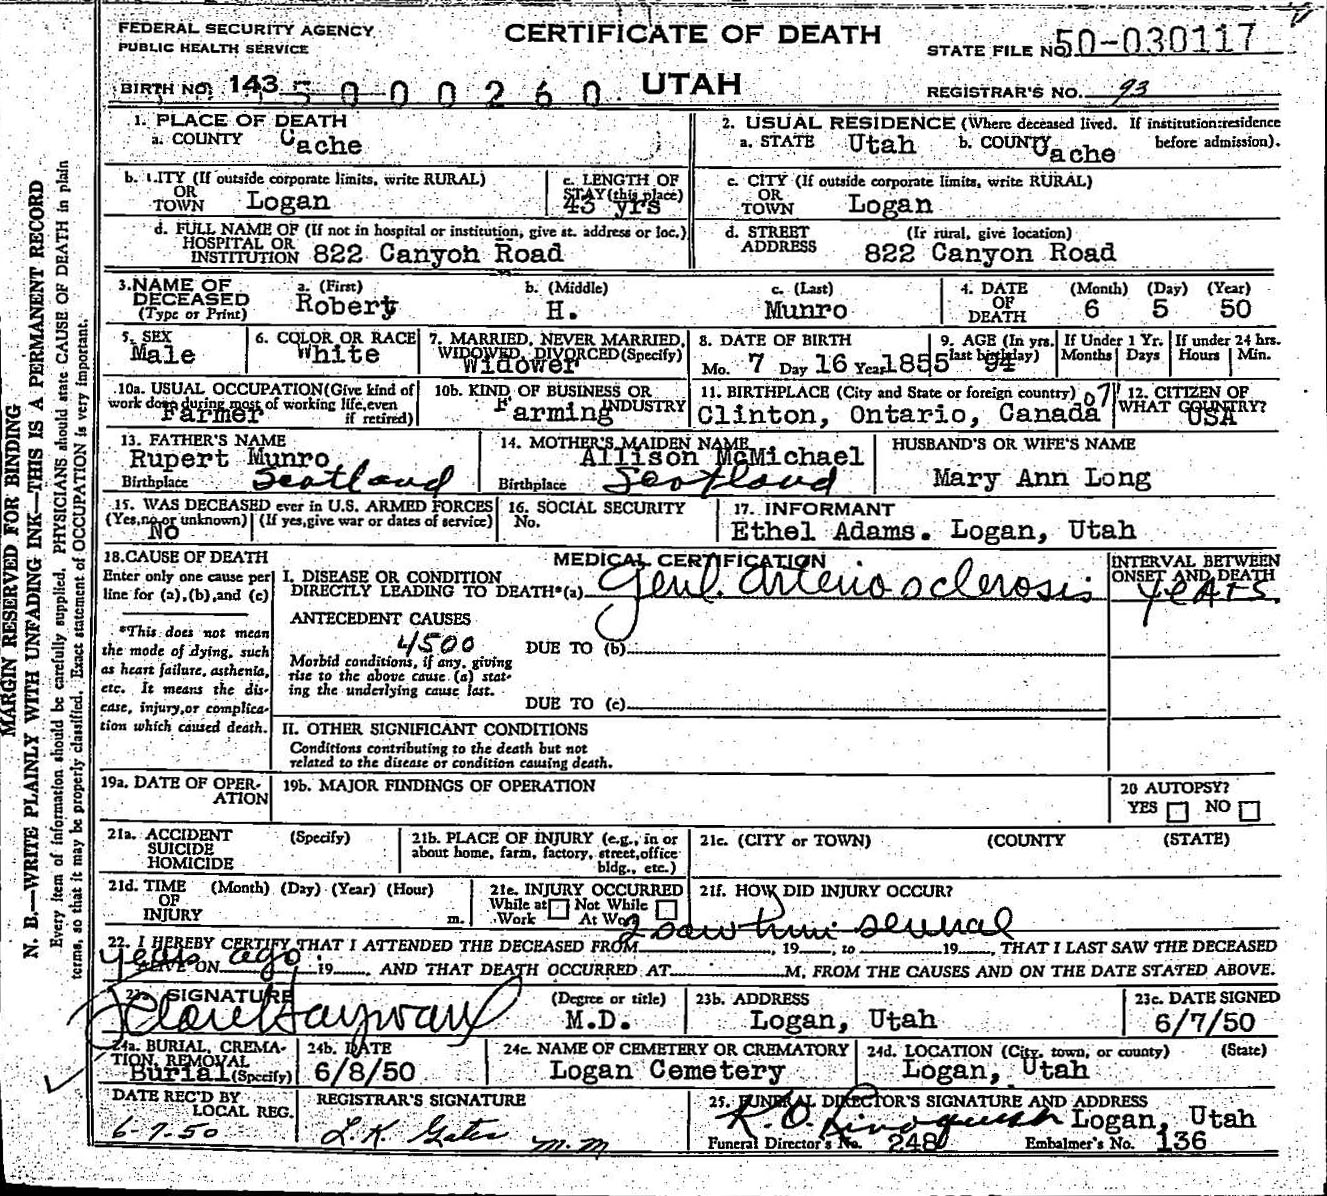 FEDERAL SECURITY AGENCY
PUBLIC HEALTH SERVICE
CERTIFICATE OF DEATH
STATE FILE NO. 50-030117
BIRTH NO. 143 5000260
UTAH
REGISTRAR'S NO. 93
1. PLACE OF DEATH
a. COUNTY Cache
2. USUAL RESIDENCE (Where deceased lived. If institution:residence before admission).
a. STATE Utah b. COUNTY Cache
b. CITY (If outside corporate limits, write RURAL)
OR
TOWN Logan
c. LENGTH OF
STAY (this place)
43 yrs
c. CITY (If outside corporate limits, write RURAL)
OR
TOWN Logan
d. FULL NAME OF (If not in hospital or institution, give st. address or loc.)
HOSPITAL OR
INSTITUTION 822 Canyon Road
d. STREET (If rural, give location)
ADDRESS 822 Canyon Road
3. NAME OF
DECEASED
(Type or Print)
a. (First) b. (Middle) c. (Last)
Robert H. Munro
4. DATE
OF
DEATH
(Month) (Day) (Year)
6 5 50
5. SEX
Male
6. COLOR OR RACE
White
7. MARRIED, NEVER MARRIED,
WIDOWED, DIVORCED (Specify)
Widower
8. DATE OF BIRTH
Mo. 7 Day 16 Year 1855
9. AGE (In yrs.
last birthday)
94
If Under 1 Yr.
Months Days
If under 24 hrs.
Hours Min.
10a. USUAL OCCUPATION (Give kind of
work done during most of working life, even
if retired)
Farmer
10b. KIND OF BUSINESS OR
INDUSTRY
Farming
11. BIRTHPLACE (City and State or foreign country) 07
Clinton, Ontario, Canada
12. CITIZEN OF
WHAT COUNTRY?
USA
13. FATHER'S NAME
Rupert Munro
Birthplace Scotland
14. MOTHER'S MAIDEN NAME
Allison McMichael
Birthplace Scotland
HUSBAND'S OR WIFE'S NAME
Mary Ann Long
15. WAS DECEASED ever in U.S. ARMED FORCES
(Yes, no or unknown) (If yes, give war or dates of service)
No
16. SOCIAL SECURITY
No.
17. INFORMANT
Ethel Adams. Logan, Utah
18. CAUSE OF DEATH
Enter only one cause per
line for (a), (b), and (c)
*This does not mean
the mode of dying, such
as heart failure, asthenia,
etc. It means the dis-
ease, injury, or complica-
tion which caused death.
MEDICAL CERTIFICATION
I. DISEASE OR CONDITION
DIRECTLY LEADING TO DEATH*(a) Genl. Arterio sclerosis
INTERVAL BETWEEN
ONSET AND DEATH
years.
ANTECEDENT CAUSES
4500
DUE TO (b)
Morbid conditions, if any, giving
rise to the above cause (a) stat-
ing the underlying cause last.
DUE TO (c)
II. OTHER SIGNIFICANT CONDITIONS
Conditions contributing to the death but not
related to the disease or condition causing death.
19a. DATE OF OPER-
ATION
19b. MAJOR FINDINGS OF OPERATION
20 AUTOPSY?
YES NO
21a. ACCIDENT (Specify)
SUICIDE
HOMICIDE
21b. PLACE OF INJURY (e.g., in or
about home, farm, factory, street, office
bldg., etc.)
21c. (CITY or TOWN) (COUNTY) (STATE)
21d. TIME (Month) (Day) (Year) (Hour)
OF
INJURY m.
21e. INJURY OCCURRED
While at Work Not While At Work
21f. HOW DID INJURY OCCUR?
I saw him several
22. I HEREBY CERTIFY THAT I ATTENDED THE DECEASED FROM , 19 , to 19 , THAT I LAST SAW THE DECEASED
years ago.
ALIVE ON , 19 , AND THAT DEATH OCCURRED AT M., FROM THE CAUSES AND ON THE DATE STATED ABOVE.
23a. SIGNATURE (Degree or title)
Hayward M.D.
23b. ADDRESS
Logan, Utah
23c. DATE SIGNED
6/7/50
24a. BURIAL, CREMA-
TION, REMOVAL
Burial (Specify)
24b. DATE
6/8/50
24c. NAME OF CEMETERY OR CREMATORY
Logan Cemetery
24d. LOCATION (City, town, or county) (State)
Logan, Utah
DATE REC'D BY
LOCAL REG.
6-7-50
REGISTRAR'S SIGNATURE
L.K. Gates
m.m
25. FUNERAL DIRECTOR'S SIGNATURE AND ADDRESS
Logan, Utah
Funeral Director's No. 248 Embalmer's No. 136
MARGIN RESERVED FOR BINDING
N. B.—WRITE PLAINLY WITH UNFADING INK—THIS IS A PERMANENT RECORD
Every item of information should be carefully supplied. PHYSICIANS should state CAUSE OF DEATH in plain
terms, so that it may be properly classified. Exact statement of OCCUPATION is very important.